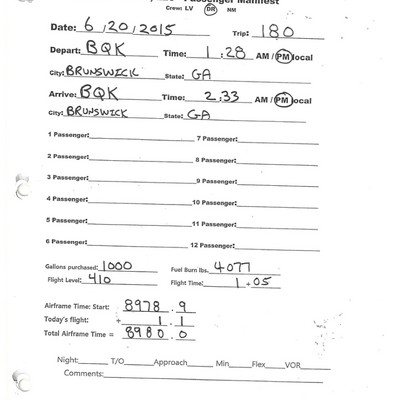 Passenger Manifest
Crew: LV DR NM
Date: 6/20/2015 Trip: 180
Depart: BQK Time: 1:28 AM / PM local
City: BRUNSWICK State: GA
Arrive: BQK Time: 2:33 AM / PM local
City: BRUNSWICK State: GA
1 Passenger: 7 Passenger:
2 Passenger: 8 Passenger:
3 Passenger: 9 Passenger:
4 Passenger: 10 Passenger:
5 Passenger: 11 Passenger:
6 Passenger: 12 Passenger:
Gallons purchased: 1000 Fuel Burn lbs. 4077
Flight Level: 410 Flight Time: 1 + 05
Airframe Time: Start: 8978.9
Today's flight: + 1.1
Total Airframe Time = 8980.0
Night: T/O Approach Min Flex VOR
Comments: